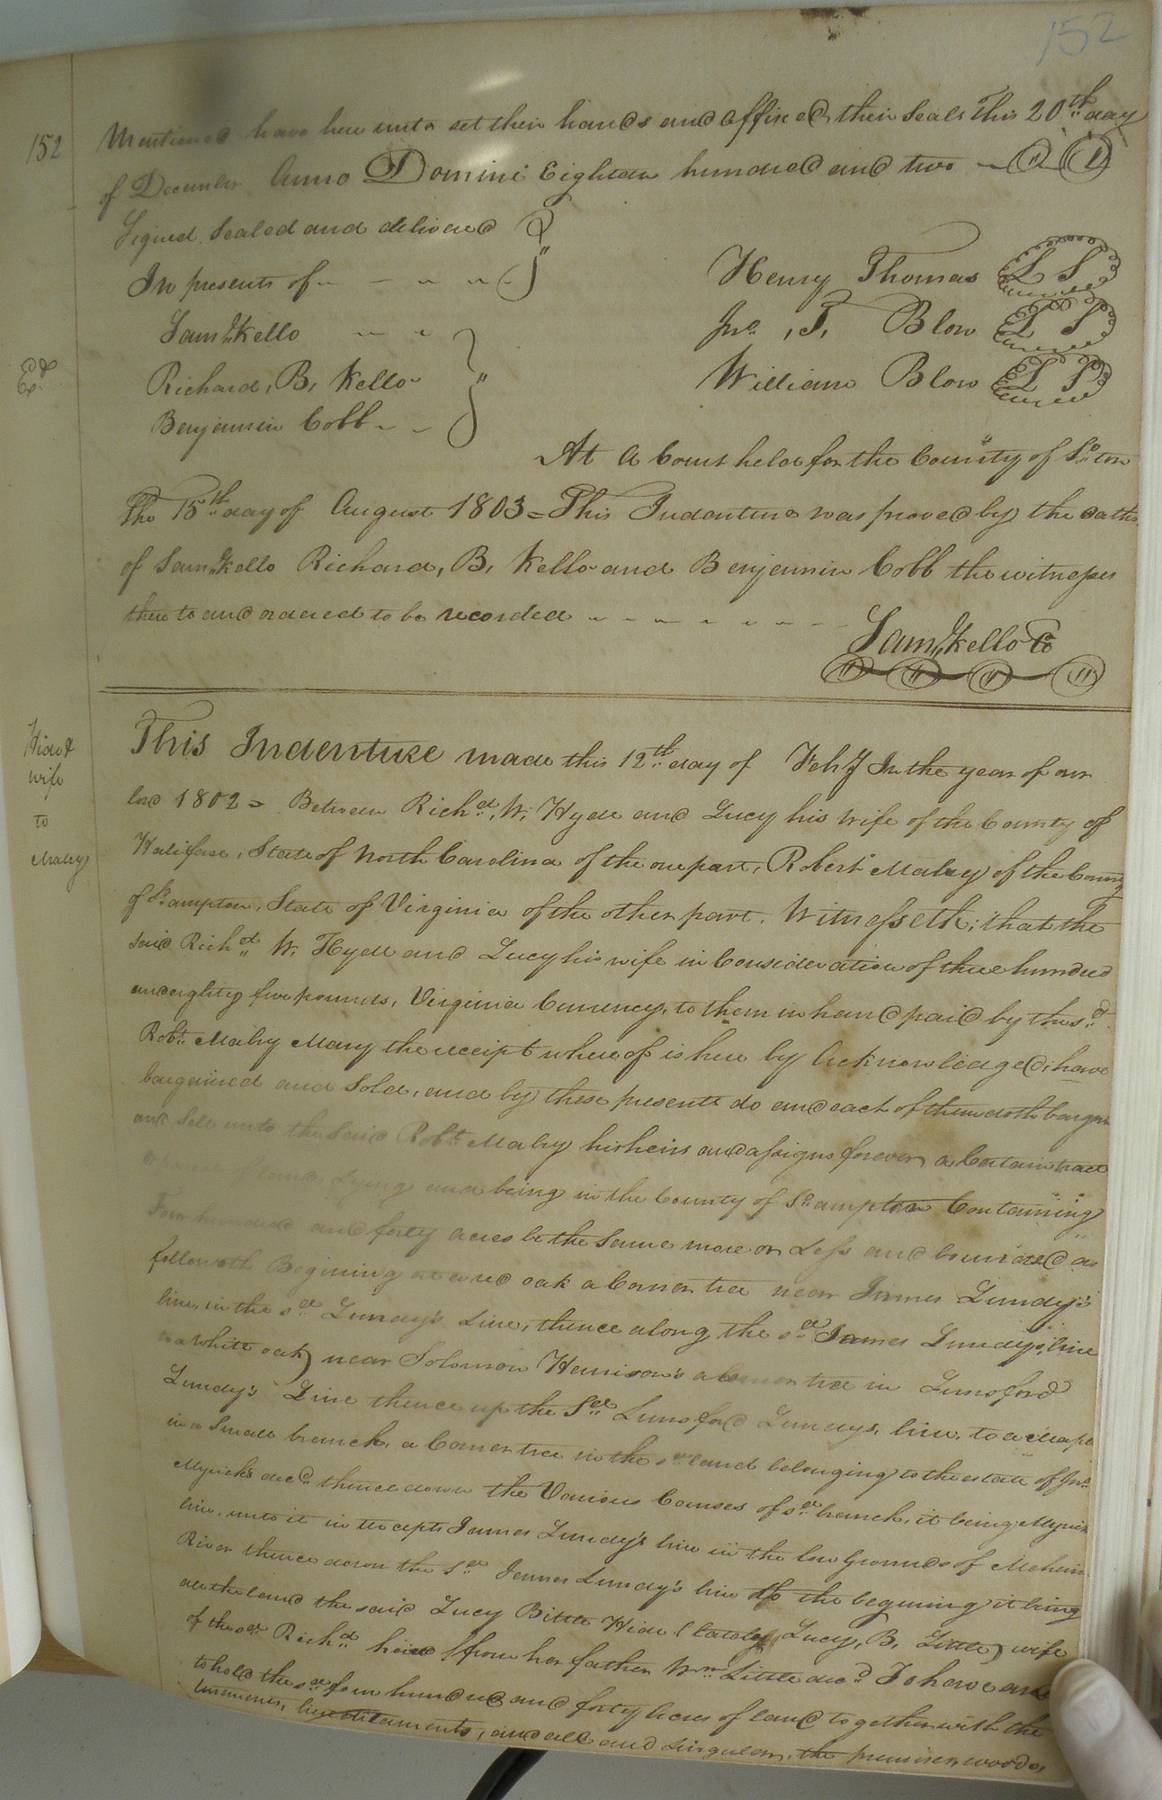 152
152
Mentioned have here unto set their hands and affixed their Seals This 20th day
of December Anno Domini Eighteen hundred and two
Signed Sealed and delivered
In presents of
Henry Thomas L S
Saml Kello
Jno. T, Blow L S
Ed
Richard, B, Kello
William Blow L S
Benjamin Cobb
At A Court held for the County of So ton
The 15th day of August 1803 = This Indenture was proved by the oaths
of Saml Kello Richard, B, Kello and Benjamin Cobb the witnesses
there to and ordered to be recorded
Saml Kello Cc
Hide &
wife
to
Mabry
This Indenture made this 12th day of Feby In the year of our
lord 1802 = Between Richd, W, Hyde and Lucy his wife of the County of
Halifax, State of North Carolina of the one part, Robert Mabry of the County
of So ampton, State of Virginia of the other part. Witnesseth; that the
said Richd W, Hyde and Lucy his wife in Consideration of three hundred
and eighty five pounds, Virginia Currency, to them in hand paid by the sd
Robt Mabry Mary the receipt whereof is here by Acknowledged; have
bargained and Sold, and by these presents do and each of them doth bargain
and Sell unto the Said Robt Mabry his heirs and assigns forever a Certain tract
Land Lying and being in the County of So ampton Containing
Four hundred and forty acres be the Same more or Less and bounded as
followeth Begining at a red oak a Corner tree near James Lundy's
line, in the sd Lundy's Line, thence along the sd James Lundys, line
to a white oak near Solomon Harrison's a Corner tree in Lunsford
Lundy's Line thence up the Sd Lunsford Lundys, line, to a maple
in a Small branch, a Corner tree in the sd land belonging to the estate of Jno
Myricks decd thence down the Various Courses of sd branch, it being Myricks
line, unto it intercepts James Lundy's line in the low Grounds of Meherin
River thence down the sd James Lundy's line to the begining it being
all the land the said Lucy Bittle Hide (lately Lucy, B, Little) wife
of the sd Richd heired from her father Wm Little decd To have and
to hold the sd four hundred and forty Acres of land together with the
tenements, hereditaments, and all and Singular, the premises, woods,